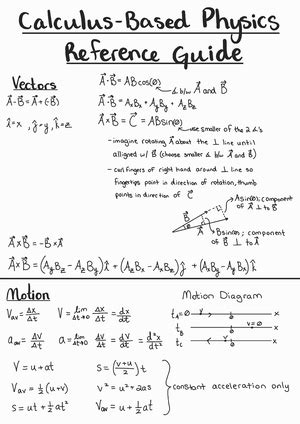 Calculus-Based Physics
Reference Guide
Vectors
A⃗-B⃗=A⃗+(-B⃗)
î=x , ĵ=y, k̂=z
A⃗·B⃗=ABcos(θ)
∡ b/w A⃗ and B⃗
A⃗·B⃗=AxBx+AyBy+AzBz
A⃗×B⃗=C⃗=ABsin(θ)
use smaller of the 2 ∡'s
-imagine rotating A⃗ about the ⊥ line until
alligned w/ B⃗ (choose smaller ∡ b/w A⃗ and B⃗)
-curl fingers of right hand around ⊥ line so
fingertips point in direction of rotation, thumb
points in direction of C⃗
Asin(θ); component
of A⃗ ⊥ to B⃗
B⃗
θ
A⃗
Bsin(θ); component
of B⃗ ⊥ to A⃗
A⃗×B⃗=-B⃗×A⃗
A⃗×B⃗=(AyBz-AzBy)î+(AzBx-AxBz)ĵ+(AxBy-AyBx)k̂
Motion
Vav=Δx/Δt
V=lim Δt→0 Δx/Δt=dx/dt
aav=ΔV/Δt
a=lim Δt→0 ΔV/Δt=dV/dt=d²x/dt²
Motion Diagram
t₀=0
x
v=0
x
x
V=u+at
S=((v+u)/2)t
Vav=½(u+v)
v²=u²+2as
S=ut+½at²
Vav=u+½at
constant acceleration only